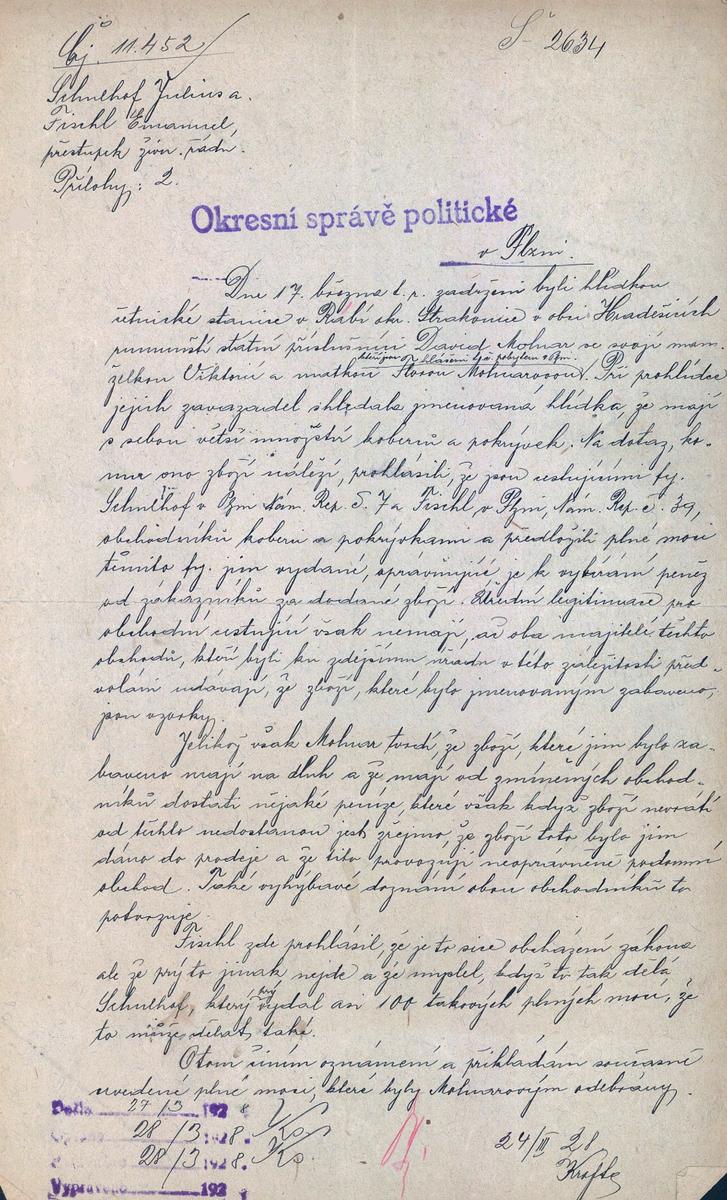 Čj. 11.452
Š 2634
Schulhof Julius a.
Fischl Emanuel,
přestupek živn. řádu.
Přílohy: 2.
Okresní správě politické
v Plzni.
Dne 17. března t. r. zadrženi byli hlídkou
četnické stanice v Rábí okr. Strakonice v obci Hradešicích
rumunští státní příslušníci David Molnar se svojí man-
kteří jsou dle hlášení t.č. pobytem v Plzni.
želkou Viktorií a matkou Molnarovou. Při prohlídce
jejich zavazadel shledala jmenovaná hlídka, že mají
s sebou větší množství koberců a pokrývek. Na dotaz, ko-
mu ono zboží náleží, prohlásili, že jsou cestujícími fy.
Schulhof v Plzni Nám. Rep. č. 7 a Fischl, v Plzni, Nám. Rep. č. 39,
obchodníků koberci a pokrývkami a předložili plné moci
těmito fy. jim vydané, opravňující je k vybírání peněz
od zákazníků za dodané zboží. Úřední legitimace pro
obchodní cestující však nemají, ač oba majitelé těchto
obchodů, kteří byli ku zdejšímu úřadu v této záležitosti před-
voláni udávají, že zboží, které bylo jmenovaným zabaveno,
jsou vzorky.
Jelikož však Molnar tvrdí, že zboží, které jim bylo za-
baveno mají na dluh a že mají od zmíněných obchod-
níků dostati nějaké peníze, které však když zboží nevrátí
od těchto nedostanou jest zřejmo, že zboží toto bylo jim
dáno do prodeje a že tito provozují neoprávněně podomní
obchod. Také vyhýbavé doznání obou obchodníků to
potvrzuje.
Fischl zde prohlásil, že je to sice obcházení zákona
ale že prý to jinak nejde a že myslel, když to tak dělá
Schulhof, který prý vydal asi 100 takových plných mocí, že
to může dělat také.
O tom činím oznámení a přikládám současně
uvedené plné moci, které byly Molnarovým odebrány.
Došlo 27/3 1928
28/3 1928. Ks.
28/3 1928. Ks.
Vypraveno 192
24/III 28
Krofta